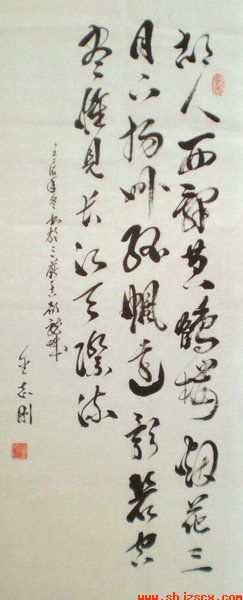 故人西辞黄鹤楼烟花三
月下扬州孤帆远影碧空
尽惟见长江天际流
志刚
www.shjzscx.com